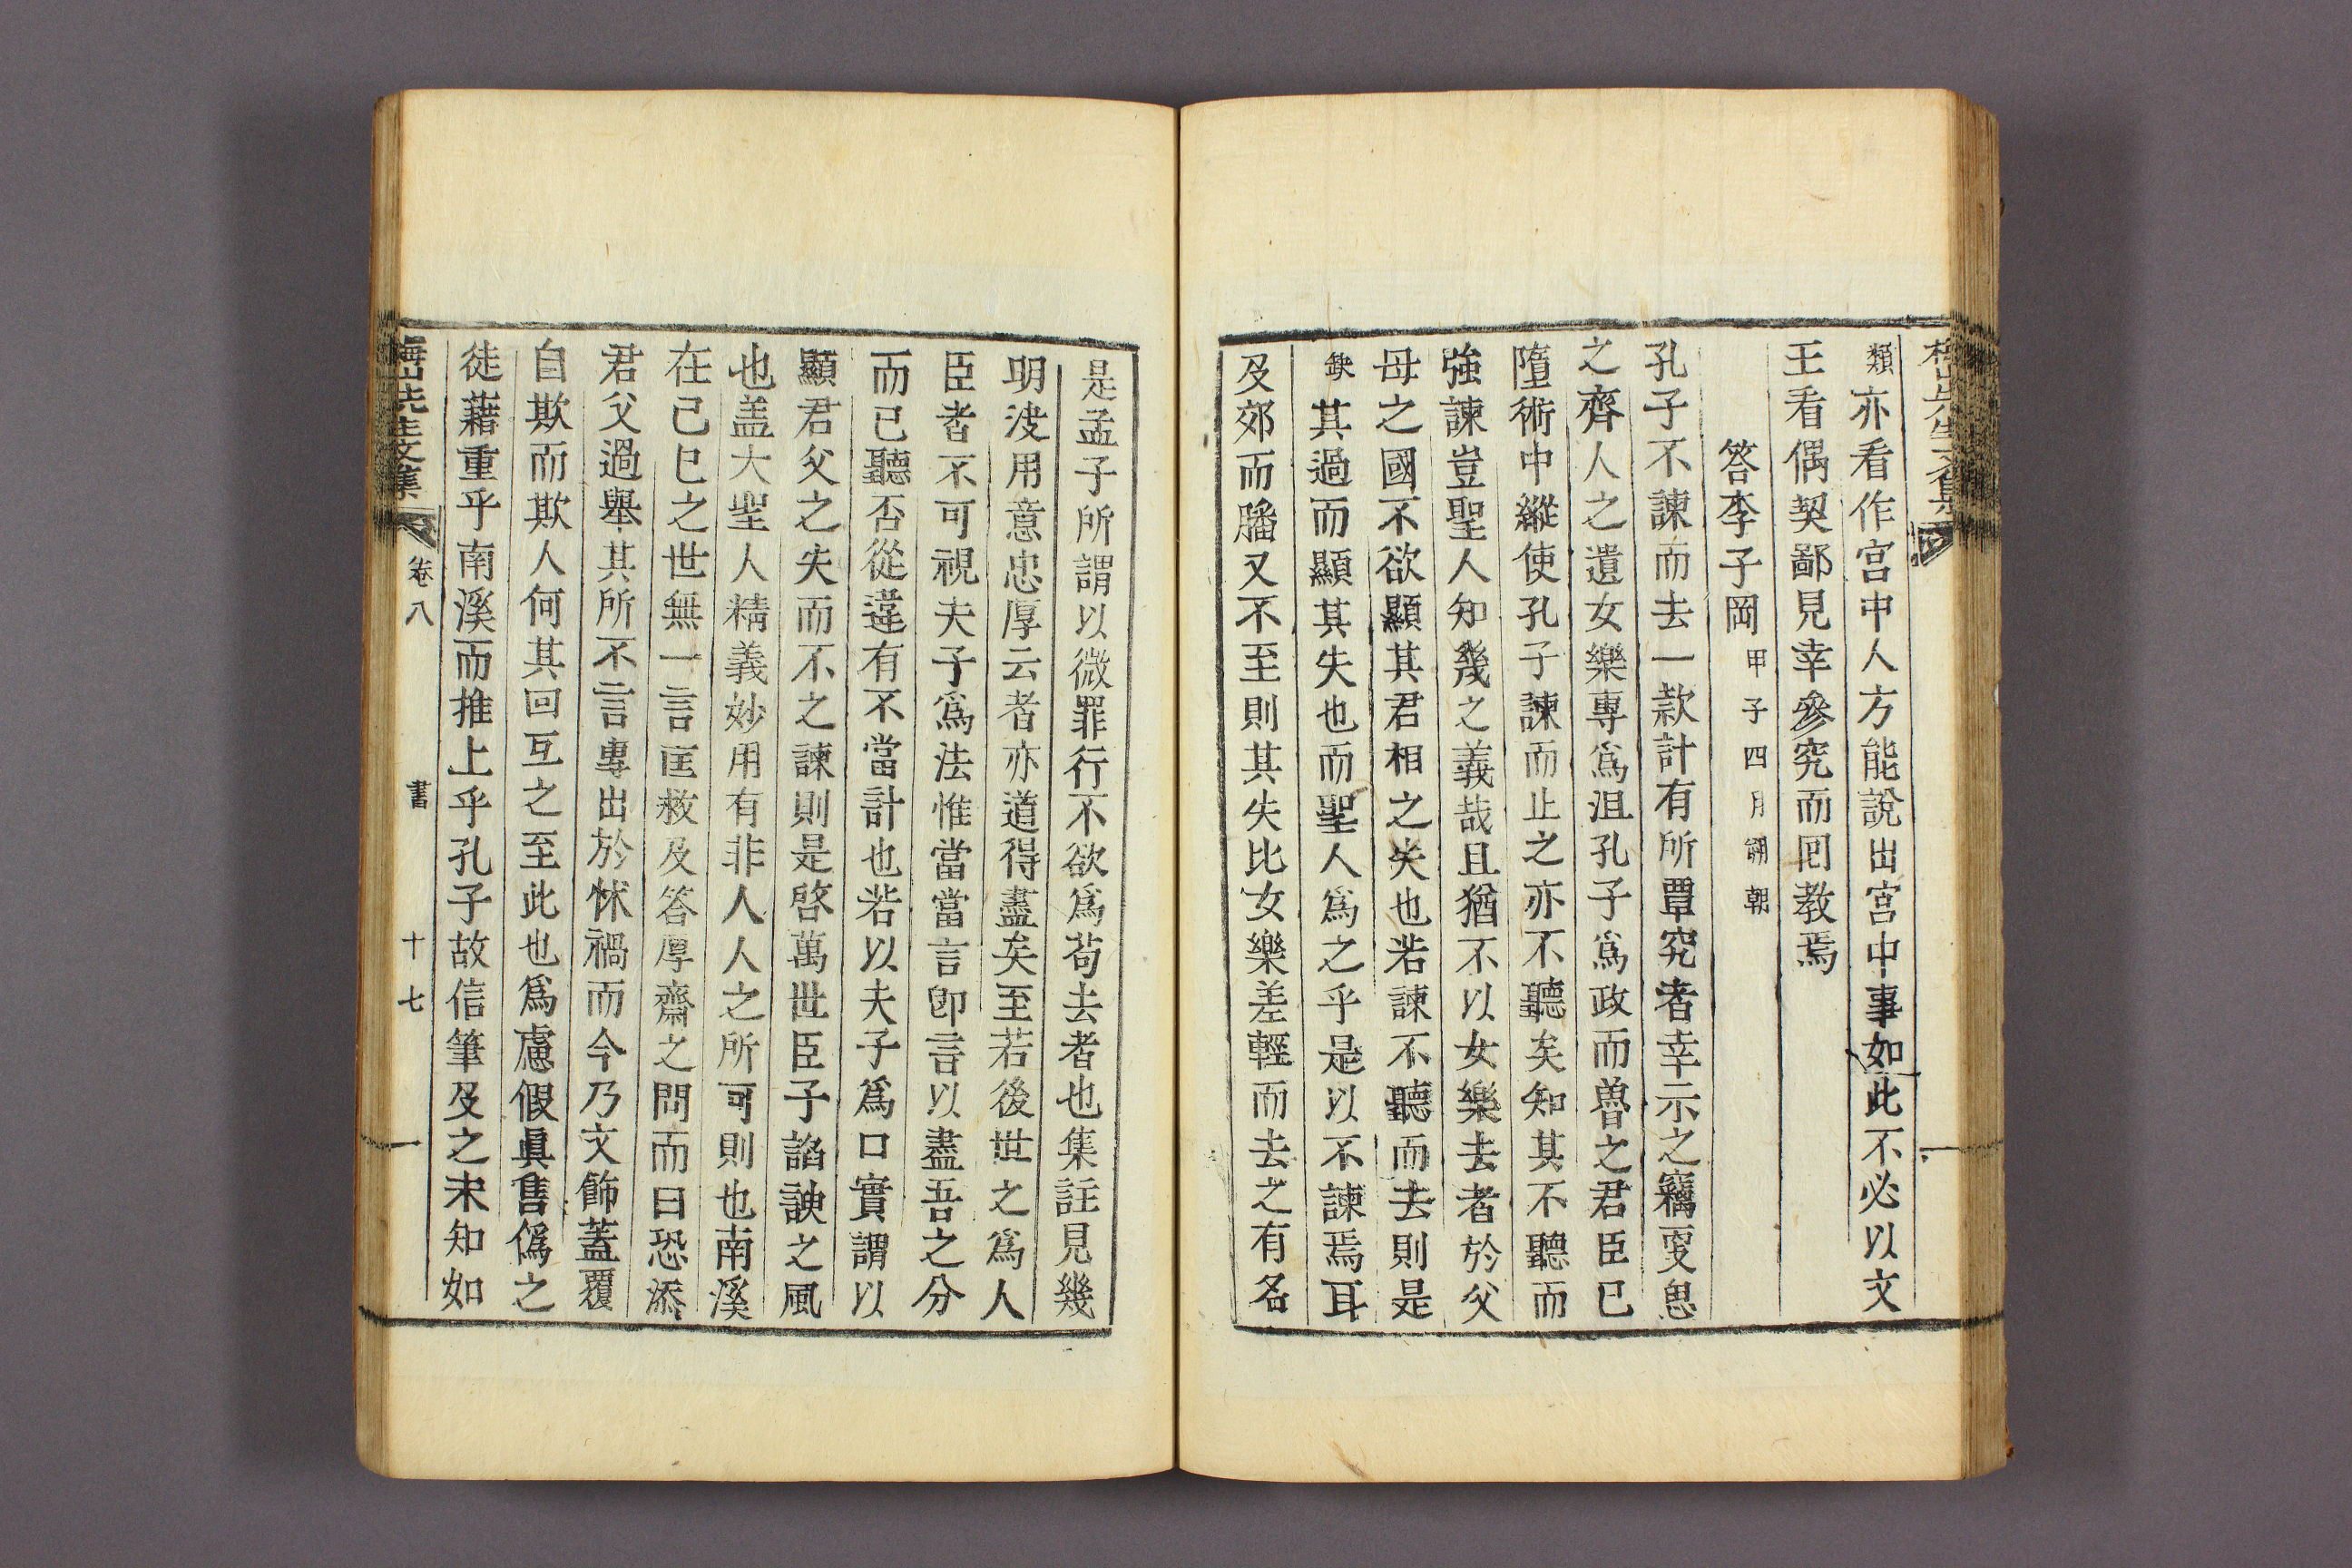 類亦看作宮中人方能說出宮中事如此不必以文
王看偶契鄙見幸參究而回教焉
答李子岡甲子四月翮朝
孔子不諫而去一款計有所覃究者幸示之竊更思
之齊人之遺女樂專爲沮孔子爲政而魯之君臣已
墮術中縱使孔子諫而止之亦不聽矣知其不聽而
強諫豈聖人知幾之義哉且猶不以女樂去者於父
母之國不欲顯其君相之失也若諫不聽而去則是
缺其過而顯其失也而聖人爲之乎是以不諫焉耳
及郊而膰又不至則其失比女樂差輕而去之有名
是孟子所謂以微罪行不欲爲苟去者也集註見幾
明決用意忠厚云者亦道得盡矣至若後世之爲人
臣者不可視夫子爲法惟當當言卽言以盡吾之分
而已聽否從違有不當計也若以夫子爲口實謂以
顯君父之失而不之諫則是啓萬世臣子諂諛之風
也盖大聖人精義妙用有非人人之所可則也南溪
在己巳之世無一言匡救及答厚齋之問而曰恐添
君父過舉其所不言專出於怵禍而今乃文飾蓋覆
自欺而欺人何其回互之至此也爲慮假眞售僞之
徒藉重乎南溪而推上乎孔子故信筆及之未知如
梅山先生文集 卷八 書 十七